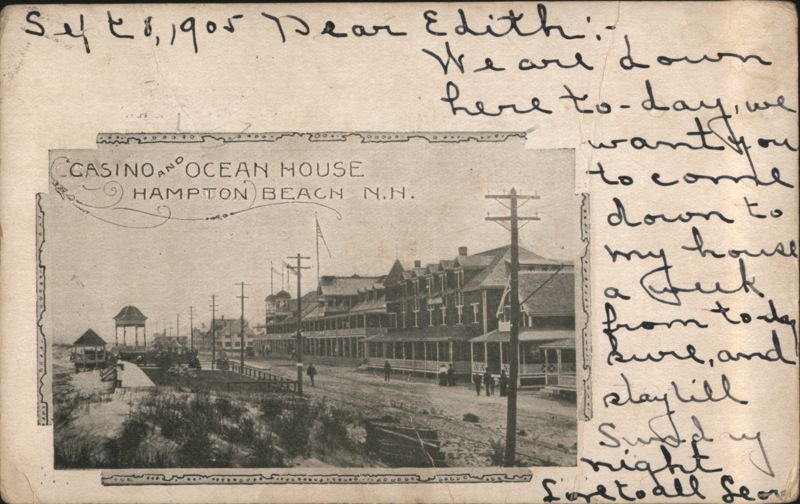 Sept 8, 1905 Dear Edith:-
We are down
here to-day, we
want you
to come
down to
my house
a week
from to-day
sure, and
stay till
Sunday
night
Love to all
CASINO AND OCEAN HOUSE
HAMPTON BEACH N.H.